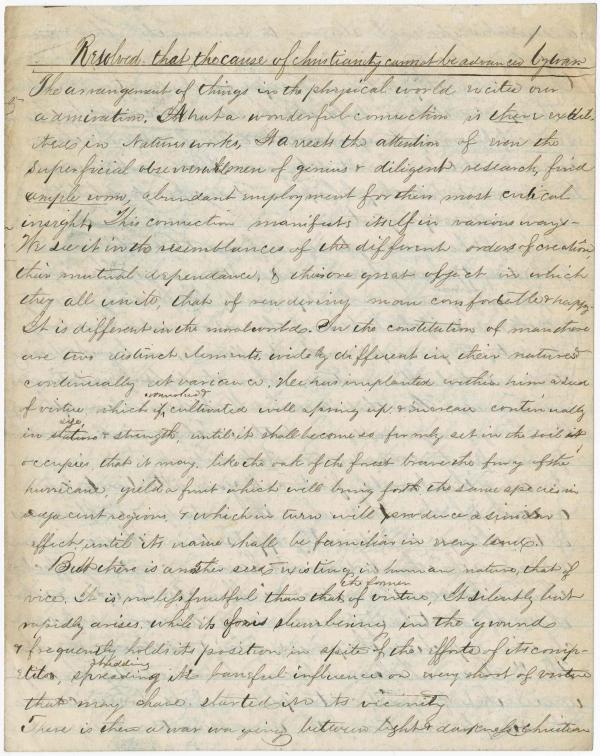 1
Resolved. that the cause of christianity cannot be advanced by war
The arrangement of things in the physical world excites our
admiration. What a wonderful connection is there exhib-
ited in Natures works, It arrests the attention of even the
superficial observer & men of genius & diligent research, find
ample room, abundant employment for their most critical
insight. This connection manifests itself in various ways-
We see it in the resemblances of the different orders of creation
their mutual dependance, & the one great object in which
they all unite, that of rendering man comfortable & happy.
It is different in the moral world. In the constitution of man there
are two distinct elements, widely different in their natures &
continually at variance. He has implanted within him a seed
of virtue, which if nourished & cultivated will spring up & increase continually
in size stature & strength, until it shall become so firmly set in the soil it
occupies, that it may, like the oak of the forest brave the fury of the
hurricane, yield a fruit which will bring forth the same species in
adjacent regions, & which in turn will produce a similar
effect, until its name shall be familiar in every land.
But there is another seed existing in human nature, that of
vice. It is no less fruitful than that the former of virtue, It silently but
rapidly arises, while its foe is slumbering in the ground
& frequently holds its position in spite of the efforts of its comp-
etitor, spreading shedding its baneful influence on every shoot of virtue
that may have started in its vicinity
There is then a war waging between light & darkness, christian